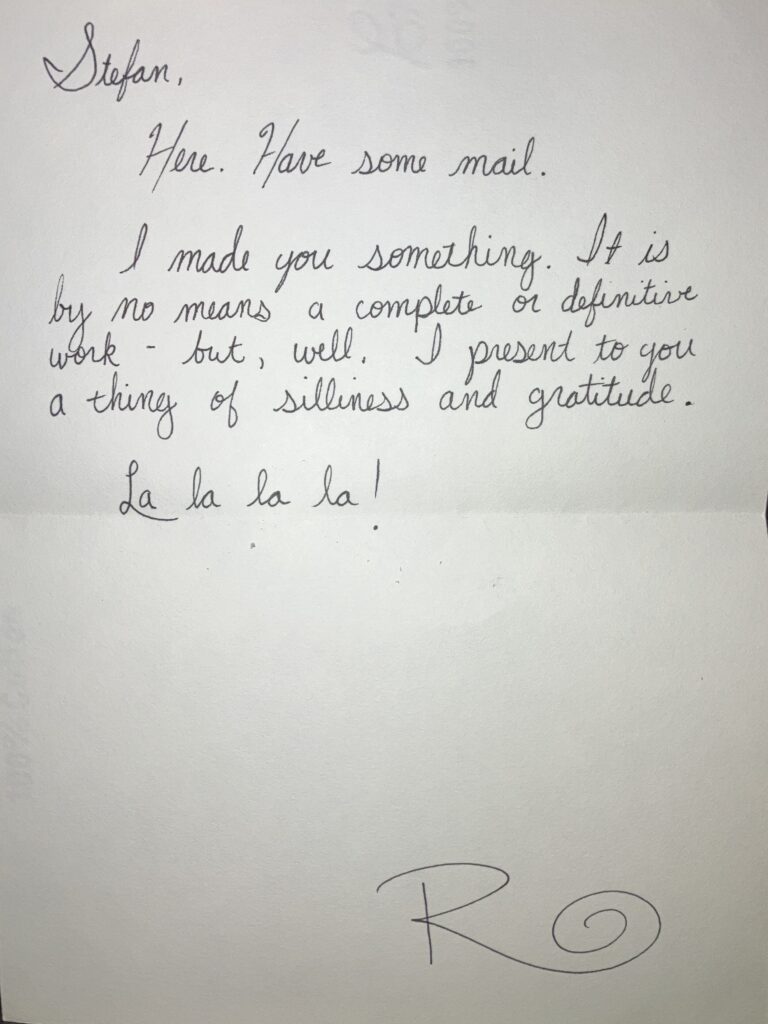 Stefan,
Here. Have some mail.
I made you something. It is
by no means a complete or definitive
work - but, well. I present to you
a thing of silliness and gratitude.
La la la la!
R